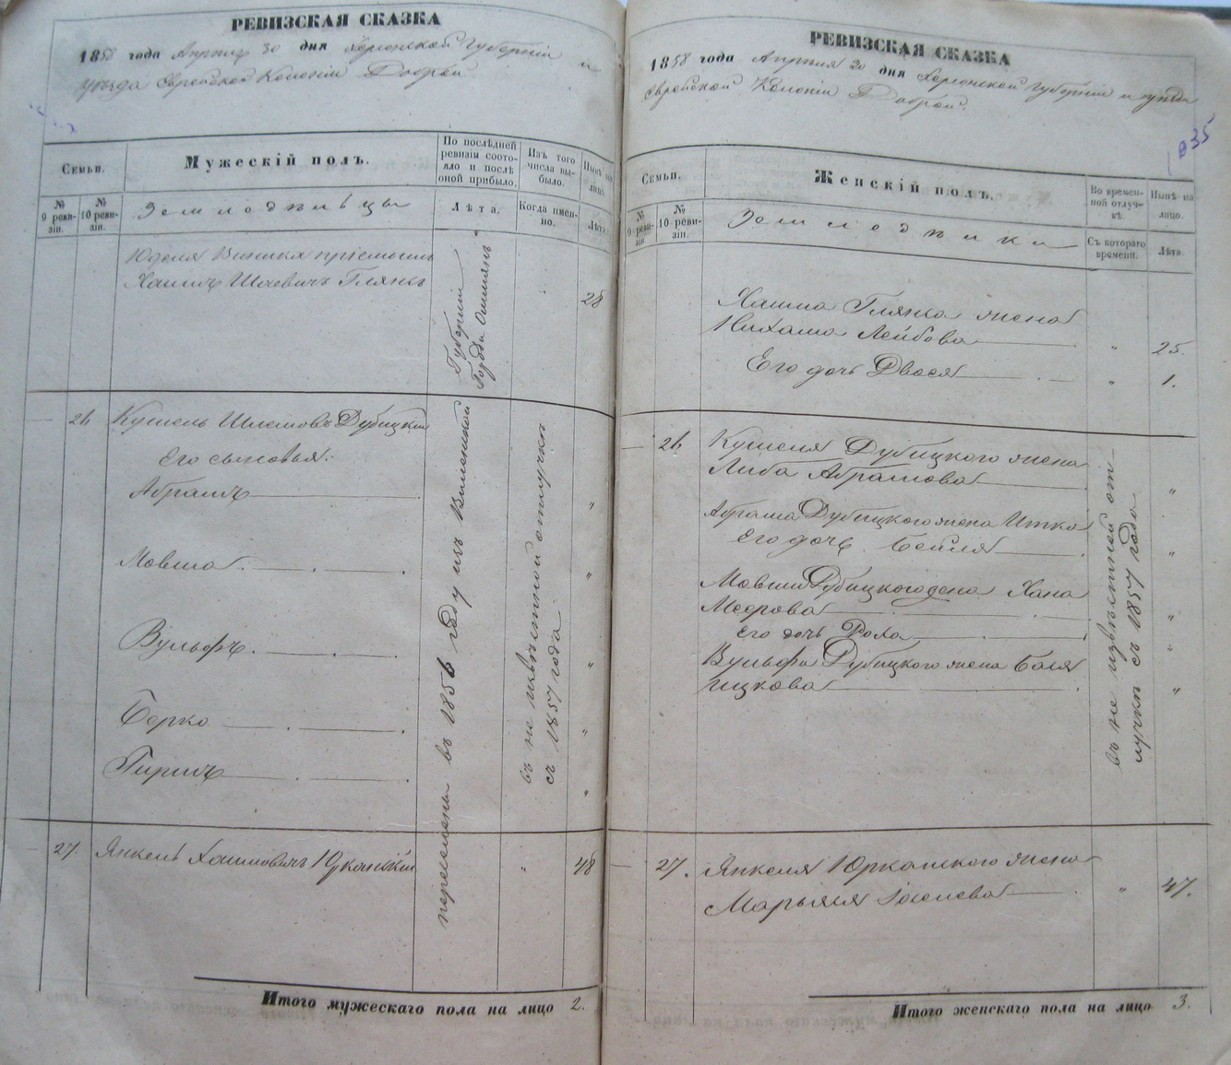 РЕВИЗСКАЯ СКАЗКА
1858 года Апрѣля 30 дня Херсонской Губерніи и
уѣзда Еврейской Колоніи Доброй
Семьи.
Мужескій полъ.
По послѣдней ревизіи состояло и послѣ оной прибыло.
Изъ того числа выбыло.
Нынѣ на лицо.
№ 9 ревизіи.
№ 10 ревизіи.
Земледѣльцы
Лѣта.
Когда именно.
Лѣта.
Юделя Виника пріемышъ
Хаимъ Шлевичъ Глянъ
28
Губерніи
Города Ошмянъ
26
Кушель Шлемовъ Дубицкій
Его сыновья:
Абрамъ
Мовша
Вульфъ
Берко
Гиршъ
переселены въ 1856 году изъ Виленской
въ не извѣстной отлучкѣ
съ 1857 года
27
Янкель Хаимовичъ Юрканскій
48
Итого мужескаго пола на лицо 2.
РЕВИЗСКАЯ СКАЗКА
1858 года Апрѣля 30 дня Херсонской Губерніи и уѣзда
Еврейской Колоніи Доброй.
835
Семьи.
Женскій полъ.
Во временной отлучкѣ.
Нынѣ на лицо.
№ 9 ревизіи.
№ 10 ревизіи.
Земледѣлки
Съ котораго времени.
Лѣта.
Хаима Глянка жена
Нихама Лейбова
25.
Его дочь Двося
1.
26
Кушеля Дубицкого жена
Либа Абрамова
Абрама Дубицкого жена Итка
Его дочь Бейля
Мовши Дубицкого жена Хана
Меерова
Его дочь Роха
Вульфа Дубицкого жена Бася
Ицкова
въ не извѣстной от-
лучкѣ съ 1857 года
27.
Янкеля Юрканского жена
Марьяся
47.
Итого женскаго пола на лицо 3.